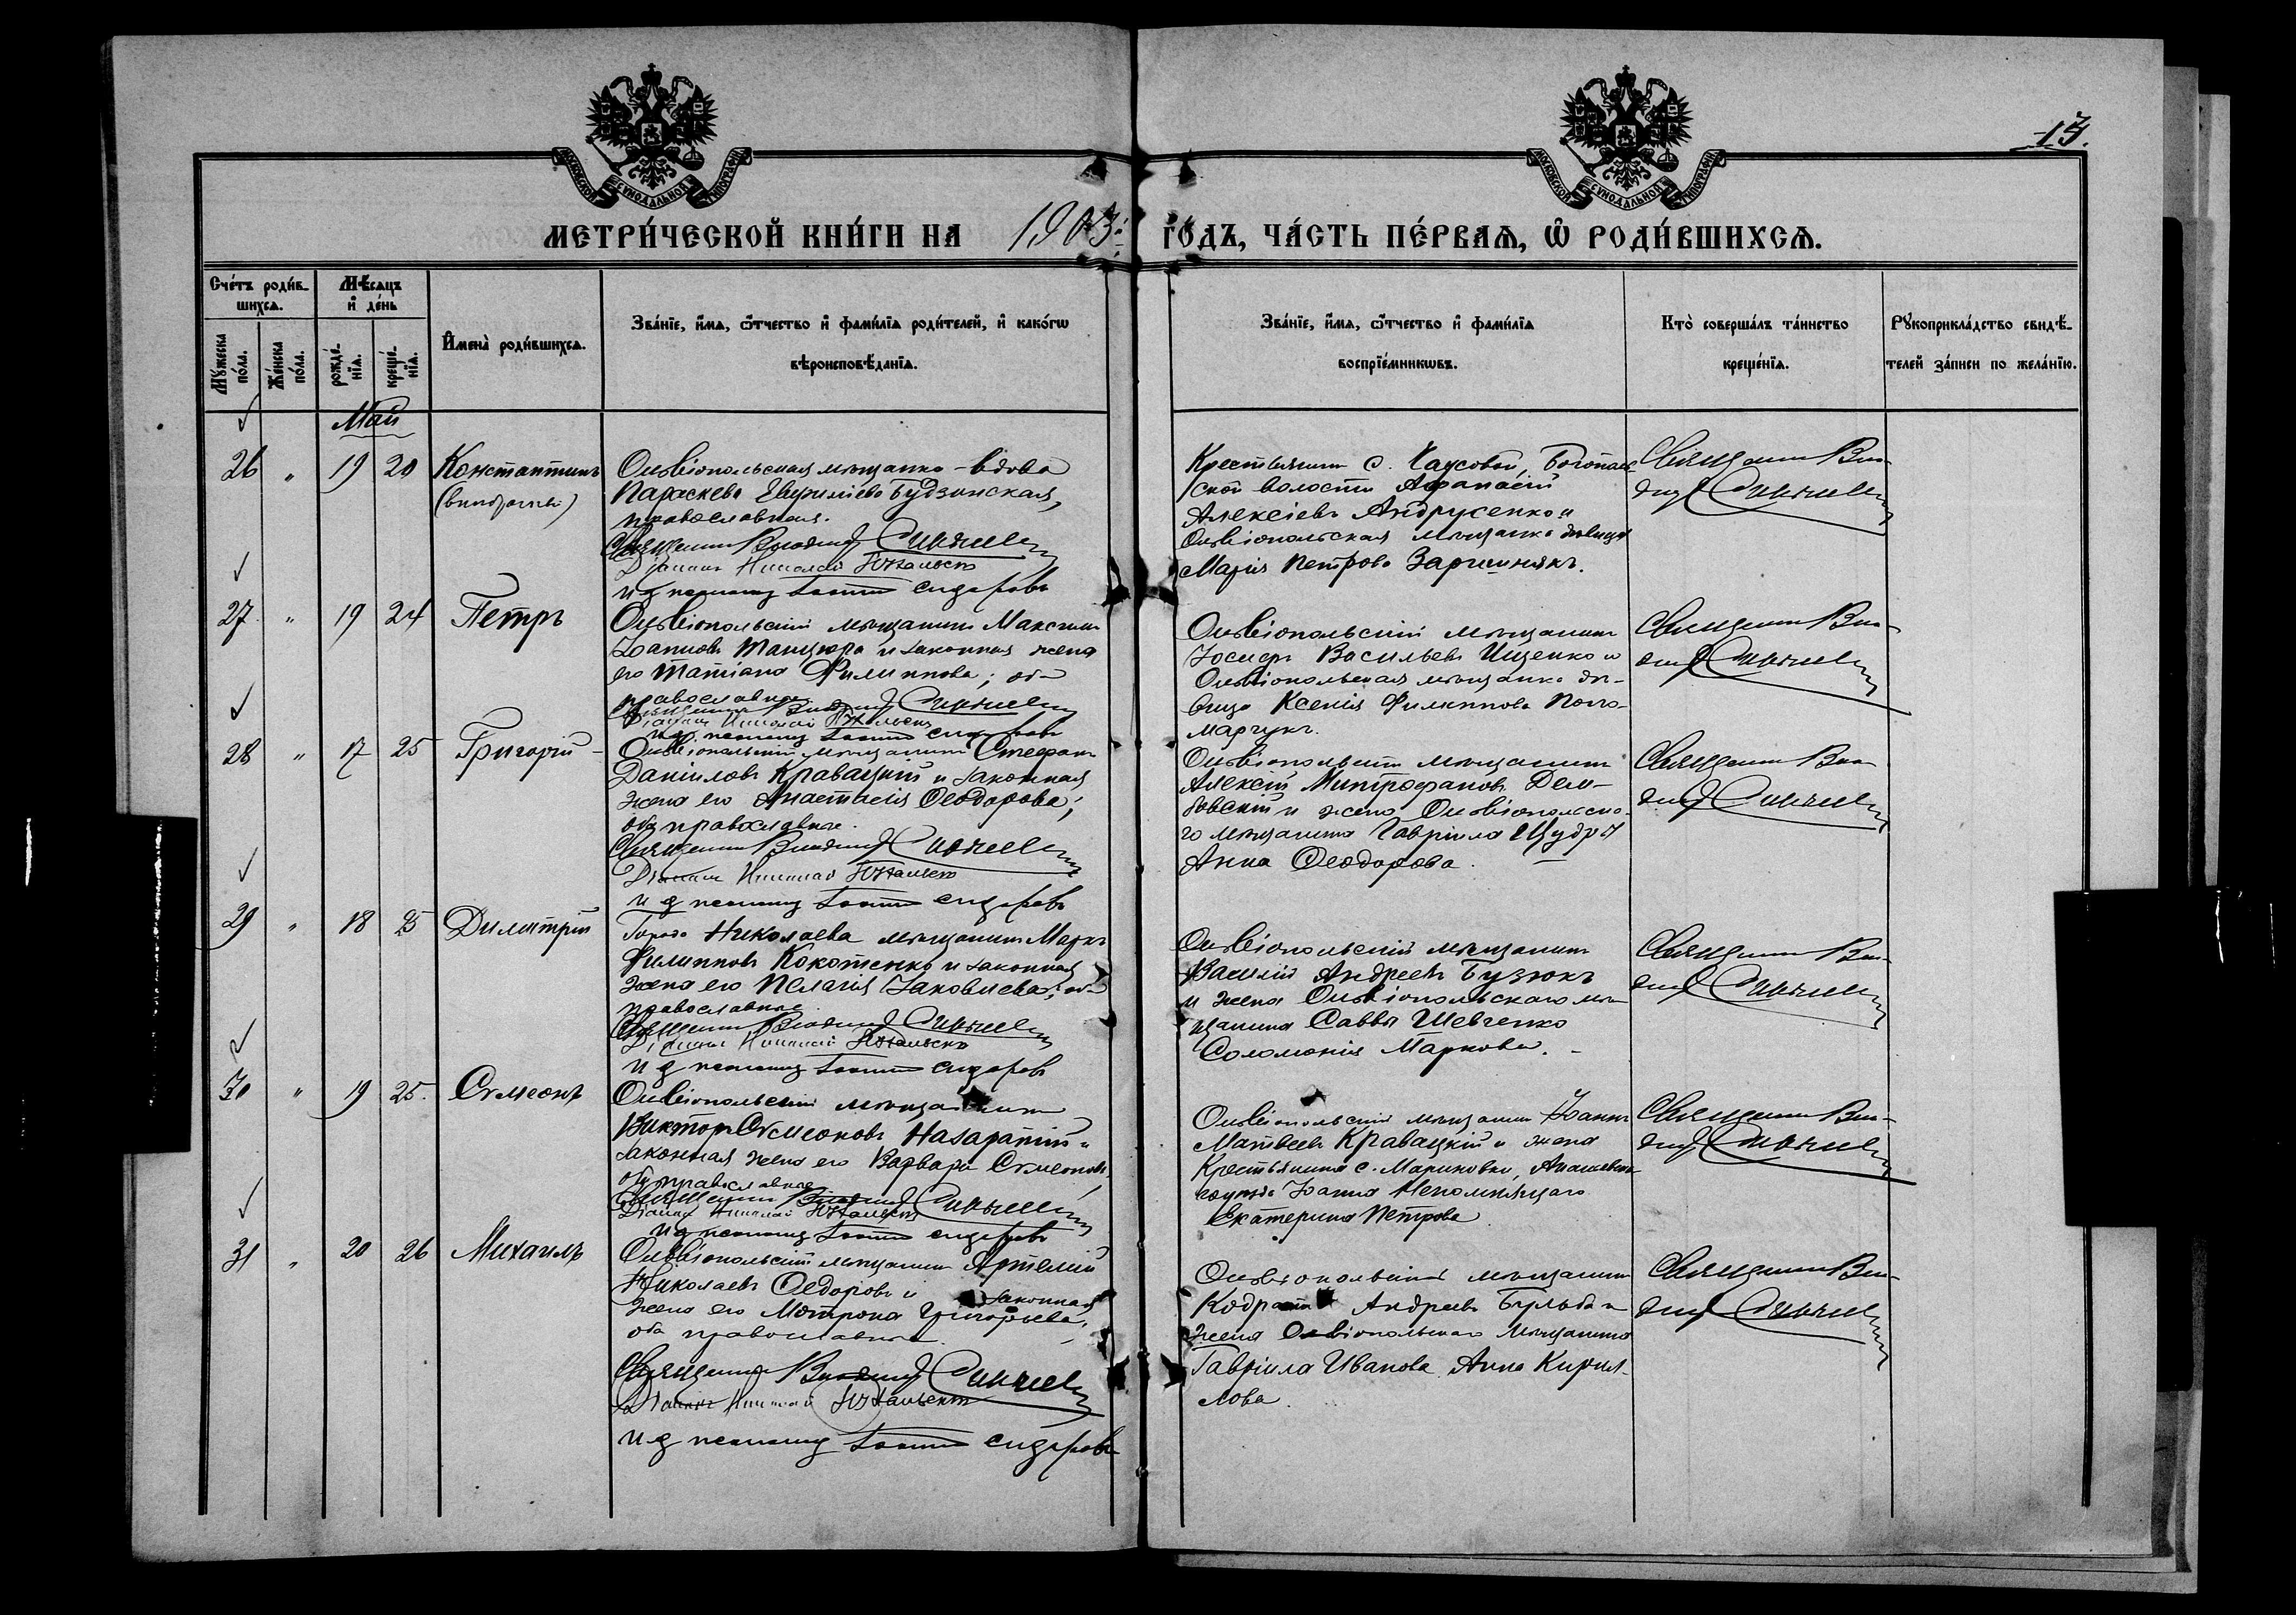 МОСКОВСКОЙ СѴНОДАЛЬНОЙ ТИПОГРАФІИ
МОСКОВСКОЙ СѴНОДАЛЬНОЙ ТИПОГРАФІИ
МЕТРИ́ЧЕСКОЙ КНИ́ГИ НА 1903
ГО́ДЪ, ЧА́СТЬ ПЕ́РВАѦ, Ѡ҆ РОДИ́ВШИХСѦ.
Сче́тъ роди́в-
шихсѧ.
Мѣ́сѧцъ
и҆ де́нь
Мꙋ́жеска
по́ла.
Же́нска
по́ла.
рожде́-
нїѧ.
креще́-
нїѧ.
И҆мена̀ роди́вшихсѧ.
Зва́нїе, и҆́мѧ, ѻ҆́тчество и҆ фами́лїѧ роди́телей, и҆ како́гѡ
вѣроисповѣ́данїѧ.
Зва́нїе, и҆́мѧ, ѻ҆́тчество и҆ фами́лїѧ
воспрїе́мникѡвъ.
Кто̀ соверша́лъ та́инство
креще́нїѧ.
Рꙋкоприкла́дство свидѣ́-
телей за́писи по жела́нїю.
Май
26 " 19 20 Константинъ
(внѣбрачный)
Ольвіопольская мѣщанка - вдова
Параскева Евфиміева Будзинская,
православная.
Священникъ Владимір
Діаконъ Николай
и д псаломщ Сидоровъ
Крестьянинъ с. Чаусовой,
ской волости Афанасій
Алексіевъ Андрусенко и
Ольвіопольская мѣщанка дѣвица
Марія Петрова
Священникъ Вла-
димір
27 " 19 24 Петръ
Ольвіопольскій мѣщанинъ Максимъ
Іоанновъ Танцюра и законная жена
его Татіана Филиппова; оба
православные
Священникъ Владимір
Діаконъ Николай
и д псаломщ Сидоровъ
Ольвіопольскій мѣщанинъ
Іосифъ Васильевъ Ищенко и
Ольвіопольская мѣщанка дѣ-
вица Ксенія Филиппова Поно-
марчукъ.
Священникъ Вла-
димір
28 " 17 25 Григорій
Ольвіопольскій мѣщанинъ Стефанъ
Даніиловъ Кравацкій и законная
жена его Анастасія Ѳеодорова;
оба православные.
Священникъ Владимір
Діаконъ Николай
и д псаломщ Сидоровъ
Ольвіопольскій мѣщанинъ
Алексій Митрофановъ Дем-
бовскій и жена Ольвіопольска-
го мѣщанина Гавріила Щудра
Анна Ѳеодорова.
Священникъ Вла-
димір
29 " 18 25 Димитрій
Города Николаева мѣщанинъ Маркъ
Филипповъ Кокотенко и законная
жена его Пелагія Іаковлева; оба
православные
Священникъ Владимір
Діаконъ Николай
и д псаломщ Сидоровъ
Ольвіопольскій мѣщанинъ
Василій Андреевъ Бузюкъ
и жена Ольвіопольскаго мѣ-
щанина Саввы Шевченко
Соломонія Маркова.
Священникъ Вла-
димір
30 " 19 25. Сѵмеонъ
Ольвіопольскій мѣщанинъ
Викторъ Сѵмеоновъ Назаратій и
законная жена его Варвара Сѵмеонова
оба православные
Священникъ Владимір
Діаконъ Николай
и д псаломщ Сидоровъ
Ольвіопольскій мѣщанинъ Іоаннъ
Матвеевъ Кравацкій и жена
Крестьянина с. Мариновки, Ананьевск
уѣзда Іоанна Непомнящаго
Екатерина Петрова
Священникъ Вла-
димір
31 " 20 26 Михаилъ
Ольвіопольскій мѣщанинъ Артемій
Николаевъ Ѳедоровъ и законная
жена его Мотрона Григорьева,
оба православные.
Священникъ Владимір
Діаконъ Николай
и д псаломщ Сидоровъ
Ольвіопольскій мѣщанинъ
Кодратъ Андреевъ Бульба и
жена Ольвіопольскаго мѣщанина
Гавріила Иванова Анна Кирил-
лова.
Священникъ Вла-
димір